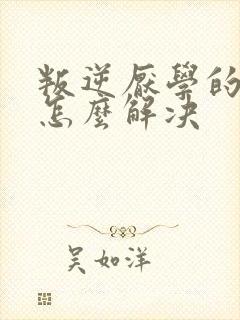 叛逆厭學的
怎麼解决
吳如洋